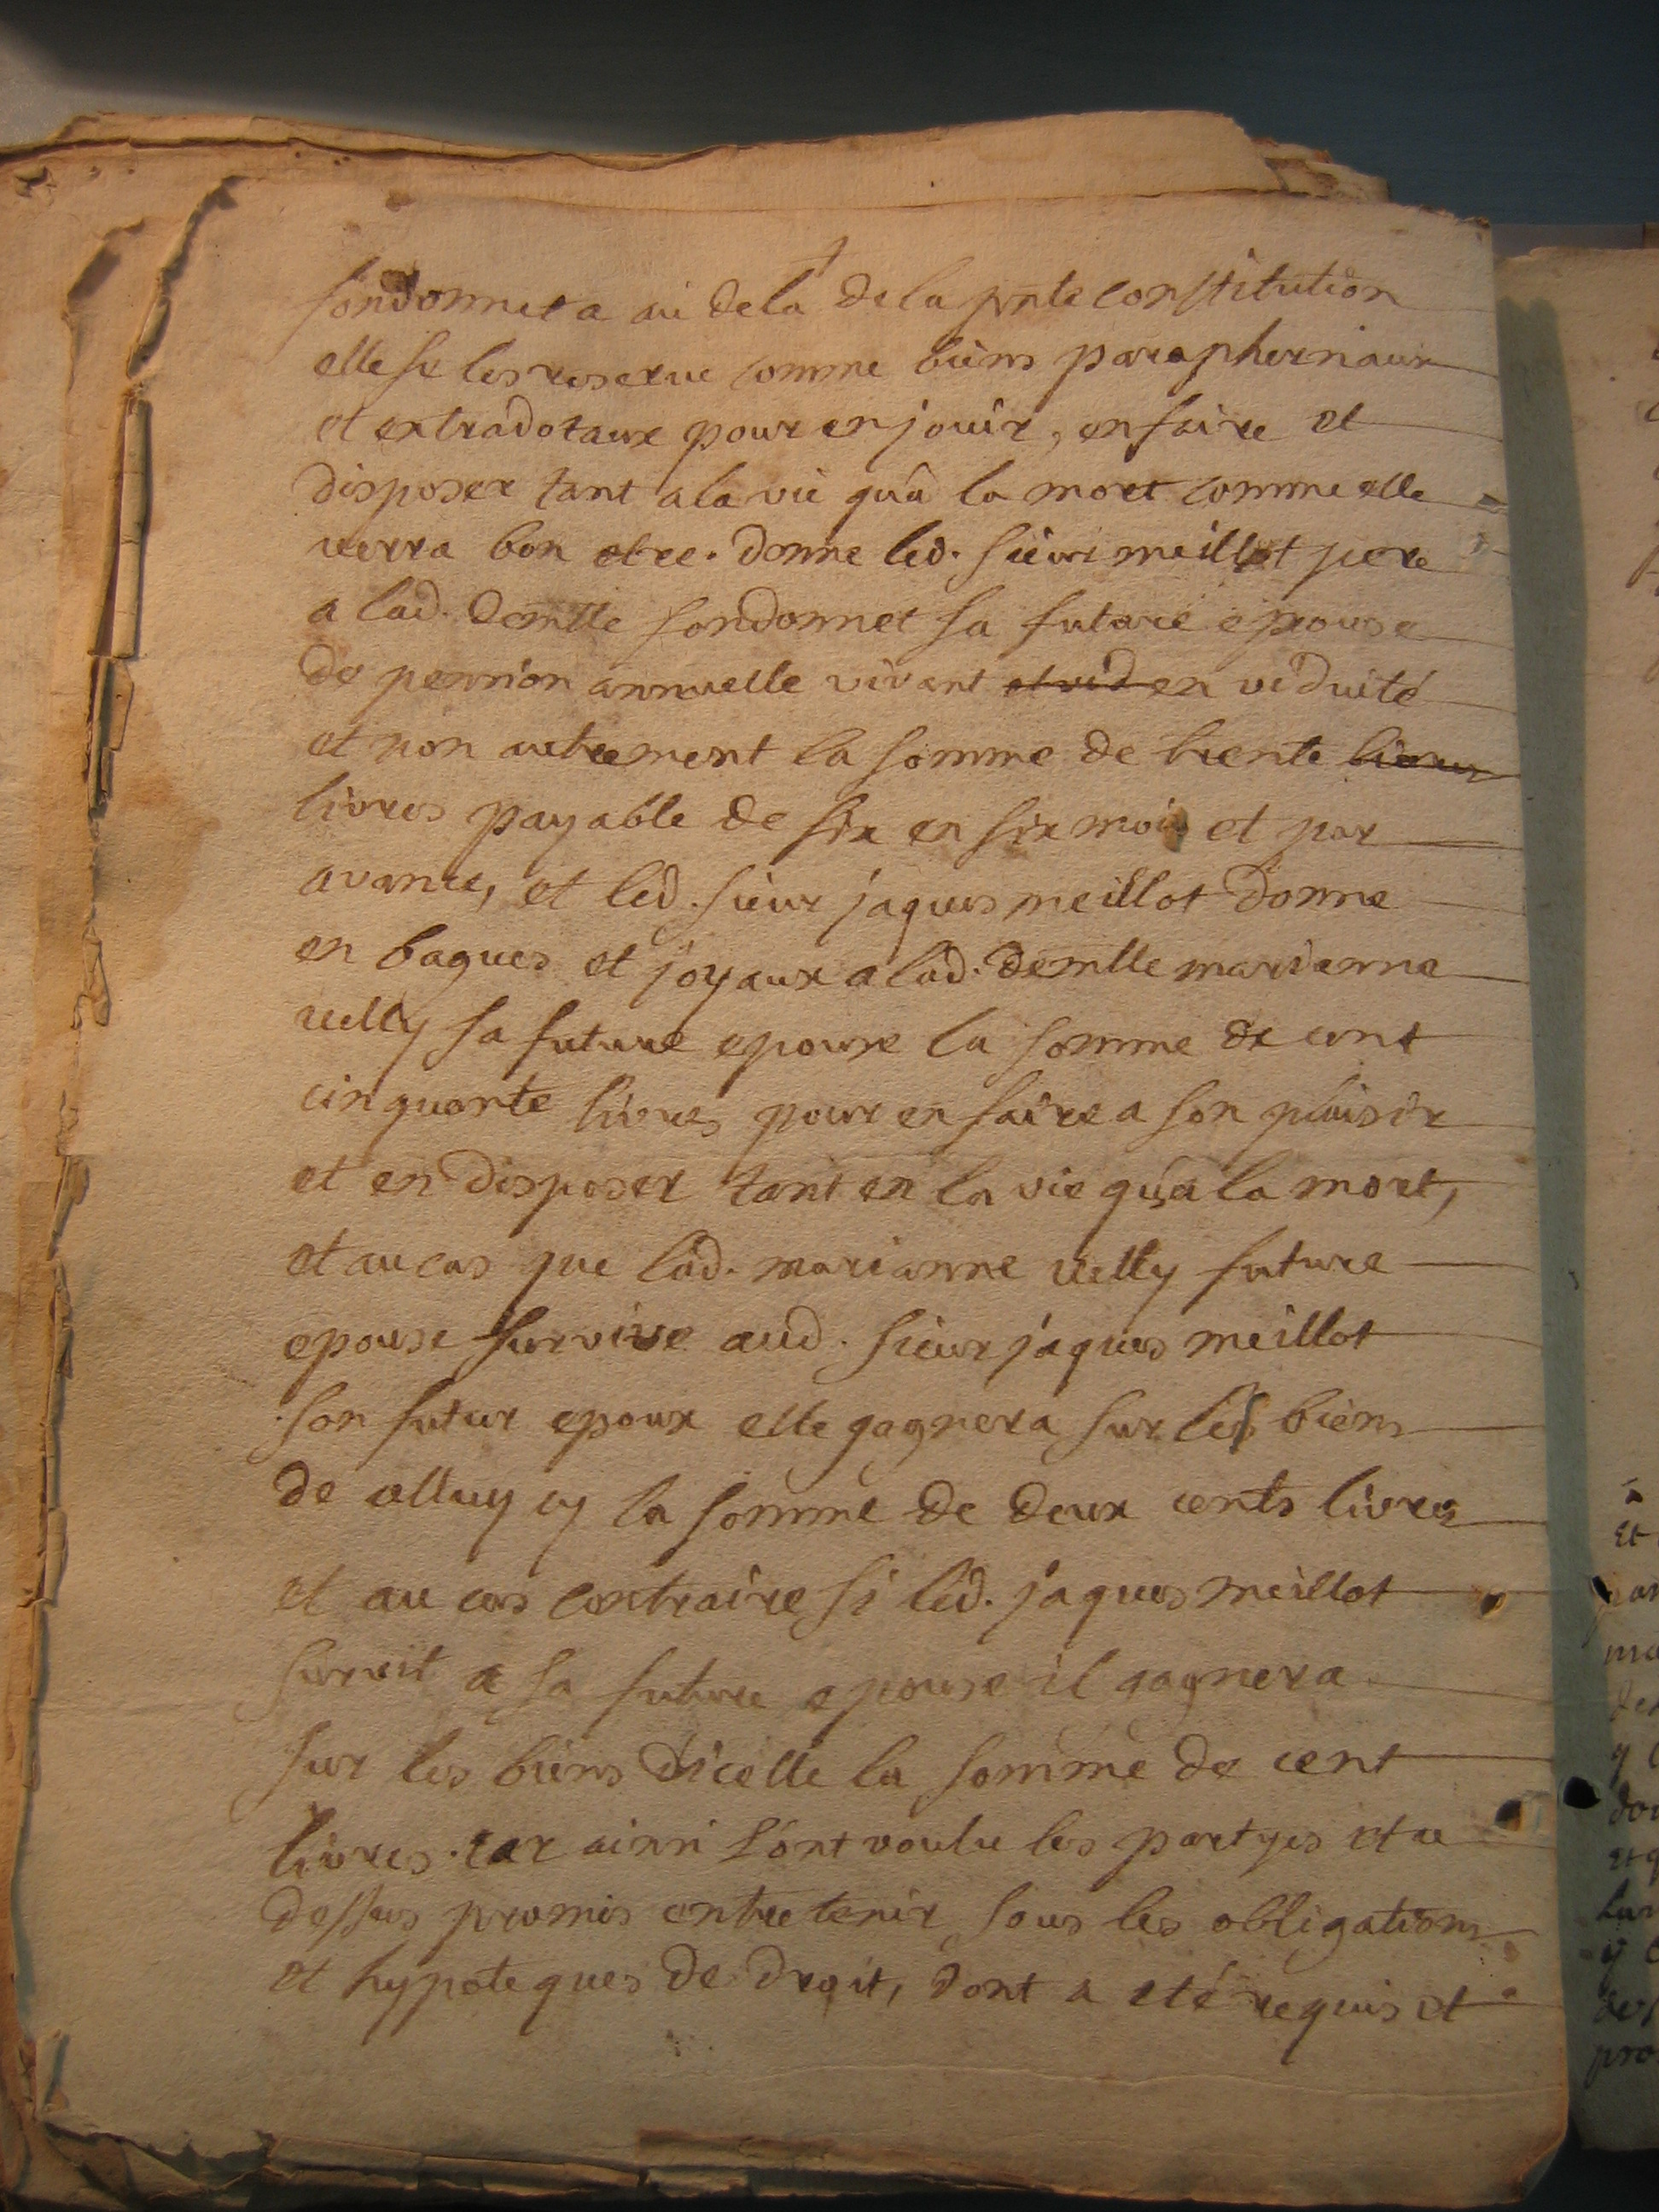 fondonnet a au dela de la pnte constitution
elle se les reserve comme biens paraphernaux
et extradotaux pour en jouir, en faire et
disposer tant a la vie qu'a la mort comme elle
verra bon etre. donne led. sieur meillot pere
a lad. demlle fondonnet sa future epouse
de pension annuelle vivant et vid en viduité
et non autrement la somme de trente livres
livres payable de six en six mois et par
avance, et led. sieur jaques meillot donne
en bagues et joyaux a lad. demlle marianne
velly sa future epouse la somme de cent
cinquante livres pour en faire a son plaisir
et en disposer tant en la vie qu'a la mort,
et au cas que lad. marianne velly future
epouse survive aud. sieur jaques meillot
son futur epoux elle gagnera sur les biens
de olluy cy la somme de deux cents livres
et au cas contraire si led. jaques meillot
survit a sa future epouse il gagnera
sur les biens d'icelle la somme de cent
livres. car ainsi l'ont voulu les partyes et ce
dessus promis entretenir sous les obligations
et hypoteques de droit, dont a eté requis et